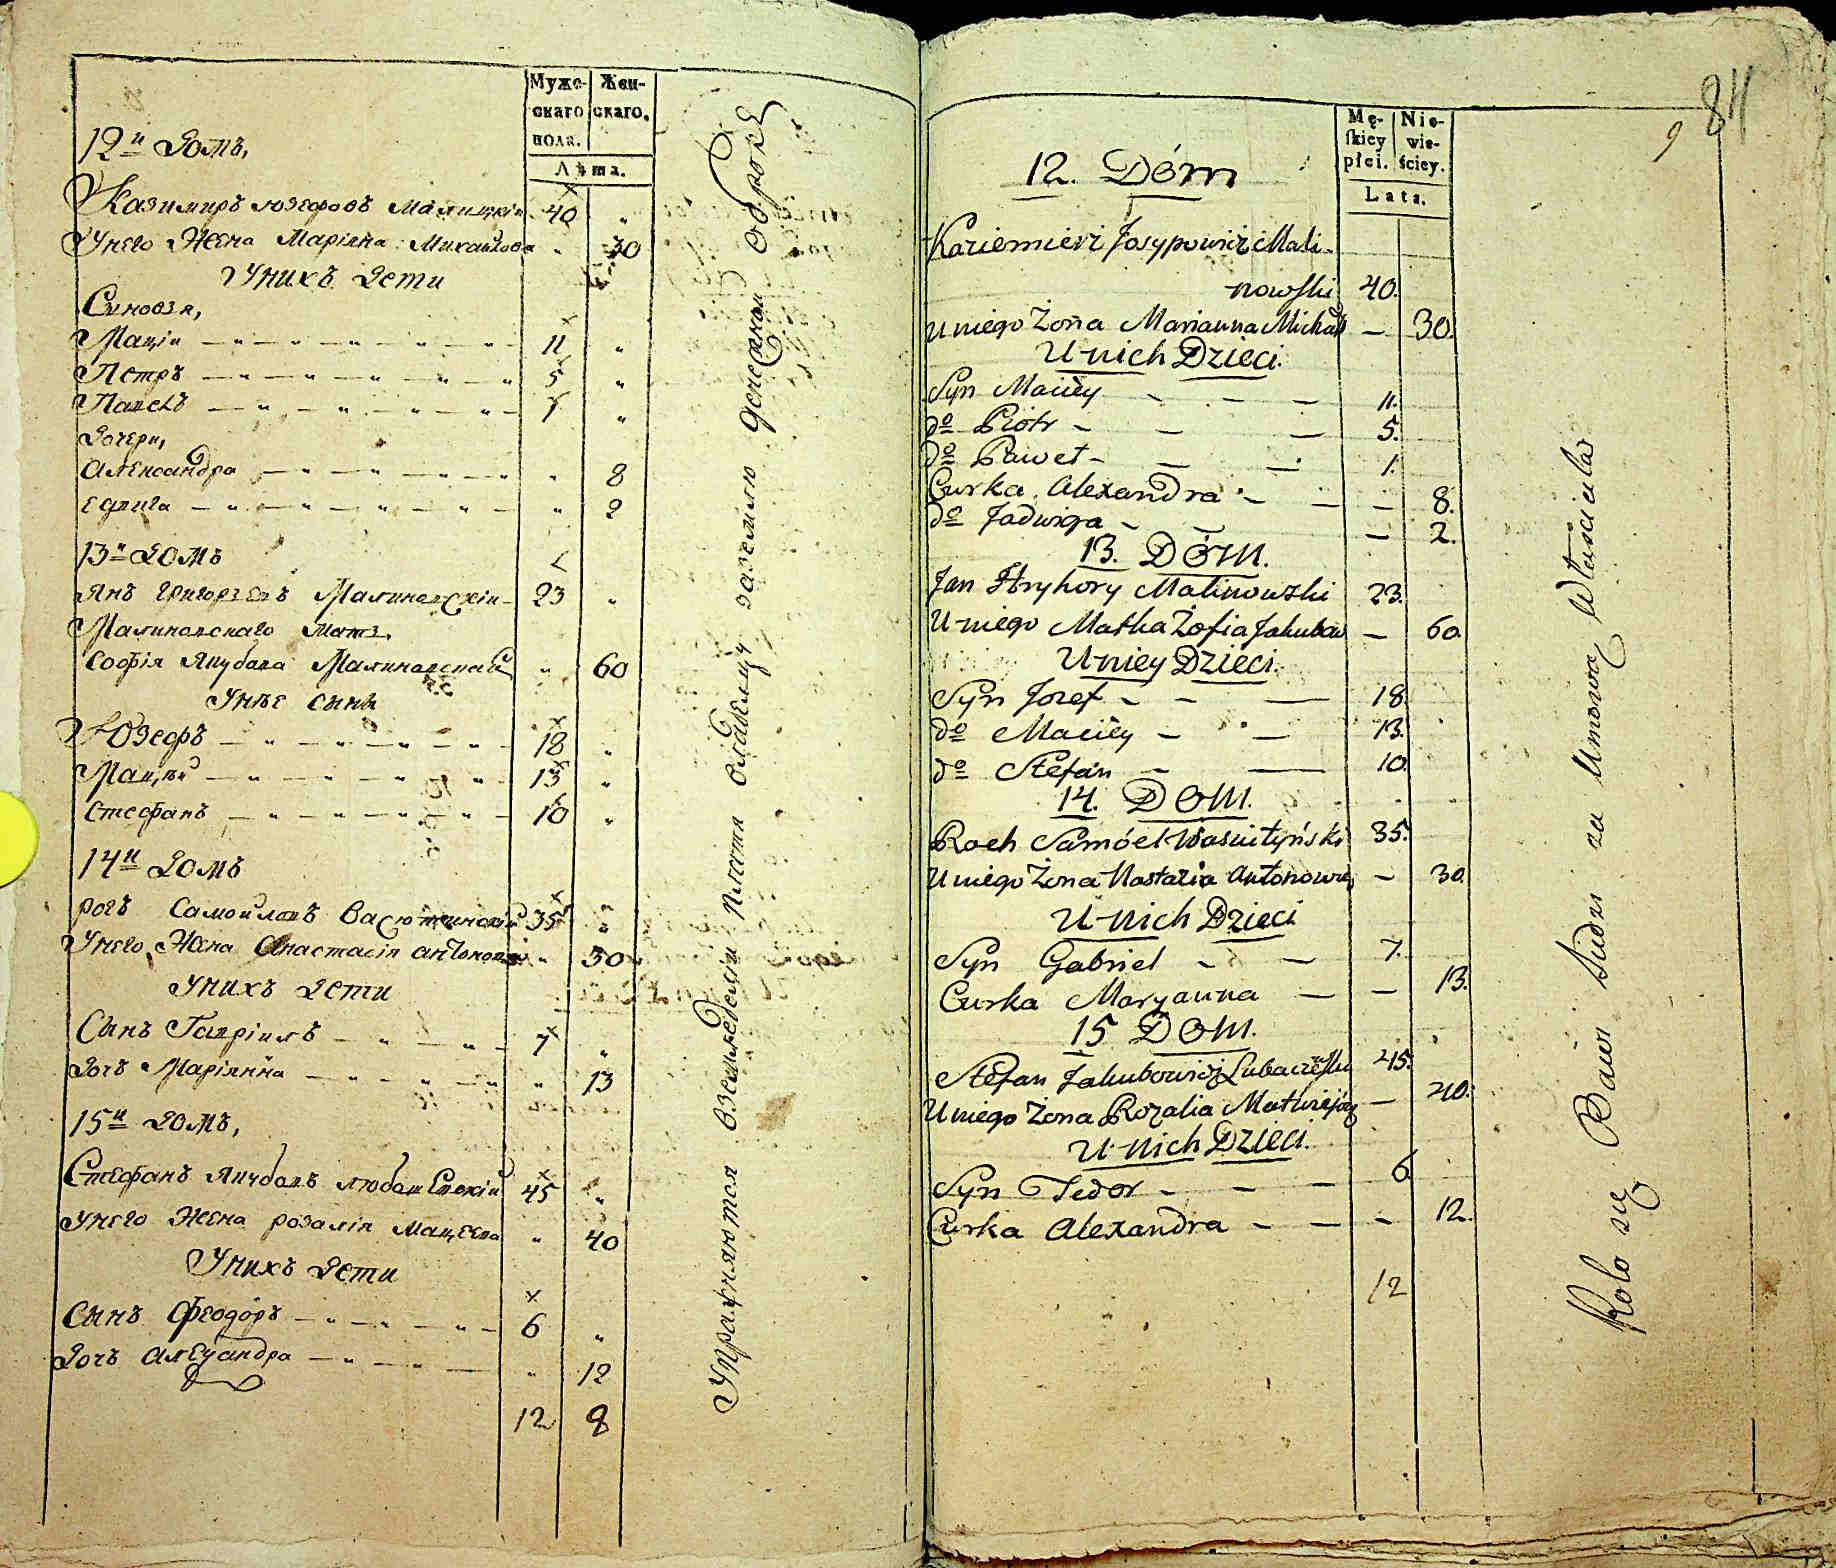 Муже-
скаго
пола.
Жен-
скаго.
Лѣта.
12й Домъ,
Казимиръ Юзефовъ 40 "
Унего Жена Маріяна Михайлова " 30
Унихъ Дети
Сыновья,
Мацѣй — " — " — " — " — 11 "
Петръ — " — " — " — " — 5 "
Павелъ — " — " — " — " — 1 "
Дочери,
Александра — " — " — " — " 8
Едвига — " — " — " — " — " 2
13й Домъ
Янъ Григорьевъ Малиновскій 23 "
Малиновскаго мать,
Софія Якубова " 60
Унѣе сыны
Юзефъ — " — " — " — " — 18 "
Мацѣй — " — " — " — " 13 "
Стефанъ — " — " — " — " — 10 "
14й Домъ
Рохъ Самойловъ Васютинскій 35 "
Унего Жена Анастасія Антонова " 30
Унихъ Дети
Сынъ Гавріилъ — " — " — 7 "
Дочъ Маріянна — " — " — " " 13
15й Домъ,
Стефанъ Якубовъ 45 "
Унего Жена Розалія Мацеева " 40
Унихъ Дети
Сынъ Феодоръ — " — " — " — 6 "
Дочъ Александра — " — " — " 12
12 8
Упражняются вземледелии платя владельцу заземлю денежной оброкъ
84
9
Mę-
skiey
płci.
Nie-
wie-
ściey.
Lata.
12. Dóm
Kaziemierz Josypowicz Mali-
nowski 40.
U niego Żona Marianna Michał — 30.
U nich Dzieci.
Syn Maciey — — — 11.
do Piotr — — — 5.
do Paweł — — — 1.
Curka Alexandra — — — 8.
do Jadwiga — — — 2.
13. Dóm.
Jan Hryhory Malinowski 23.
U niego Matka Zofia Jakubow — 60
U niey Dzieci.
Syn Jozef — — — 18.
do Maciey — — 13.
do Stefan — — 10.
14. Dom.
Roch Samóel 35.
U niego Żona Nastazia Antonowa — 30.
U nich Dzieci
Syn Gabriel — — 7.
Curka Maryanna — — 13.
15 Dom.
Stefan Jakubowicz 45.
U niego Żona Rozalia — 40.
U nich Dzieci.
Syn Fedor — — — 6
Curka Alexandra — — — 12.
12
Rolo się Bawi ludzi za Umową Właściciela